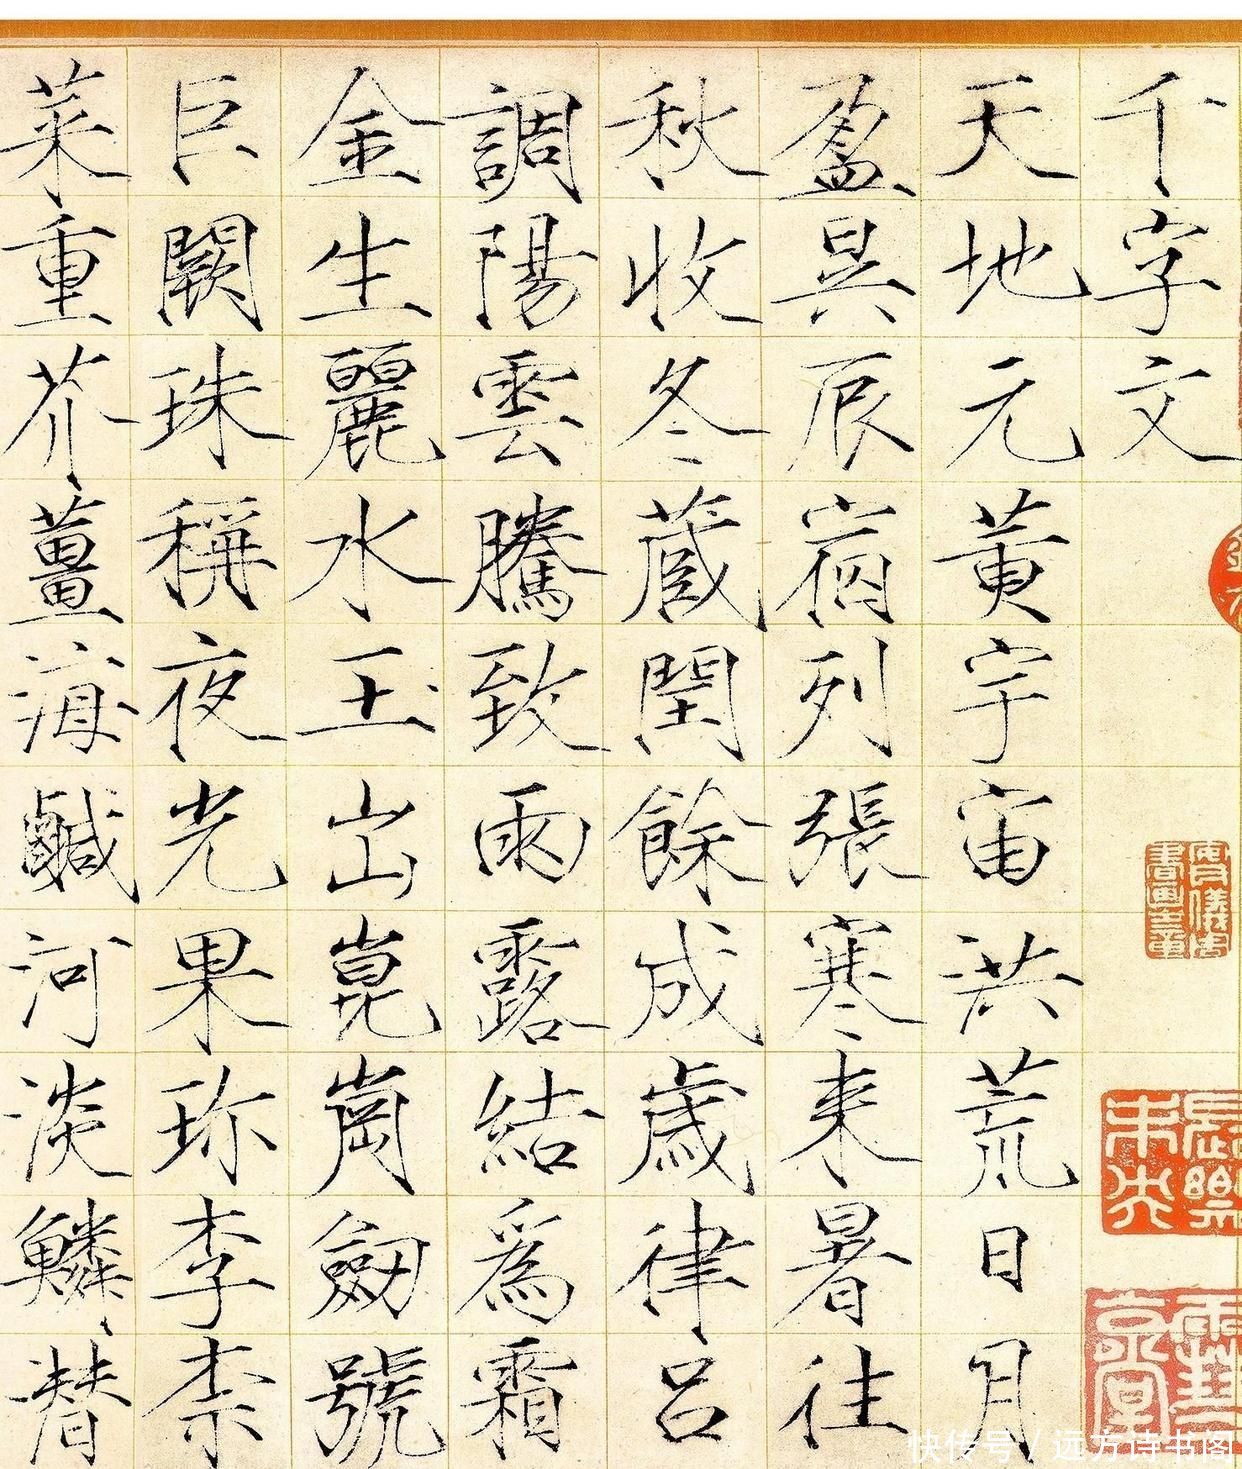 千字文
天地元黄宇宙洪荒日月
盈昃辰宿列張寒来暑往
秋收冬蔵閏餘成歲律呂
調陽雲騰致雨露結為霜
金生麗水玉出崑崗劔號
巨闕珠稱夜光果珎李柰
菜重芥薑海鹹河淡鱗潛
快传号/远方诗书阁